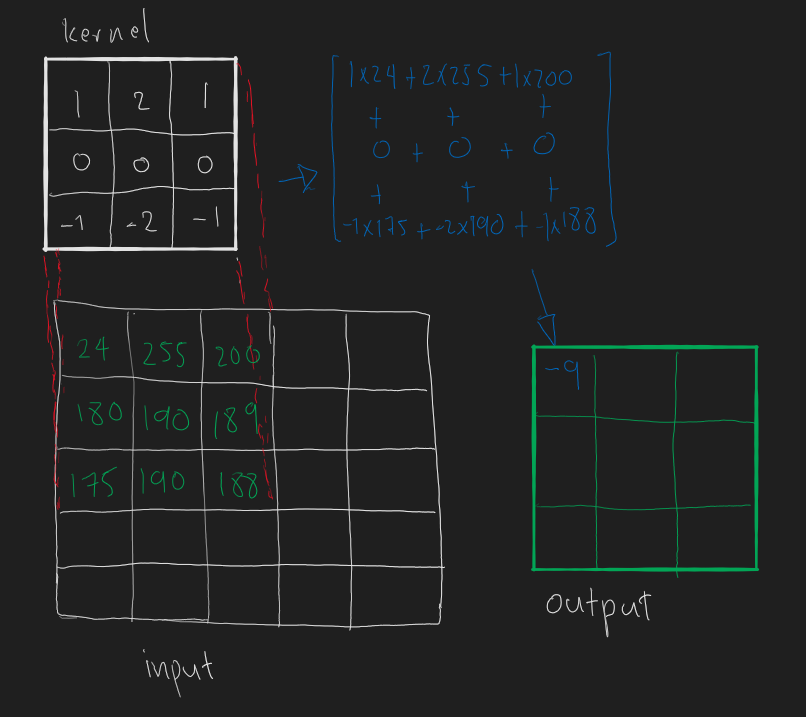 kernel
1 2 1
0 0 0
-1 -2 -1
1x24 + 2x255 + 1x200
+ + +
0 + 0 + 0
+ + +
-1x175 + -2x190 + -1x188
24 255 200
180 190 189
175 190 188
input
-9
output